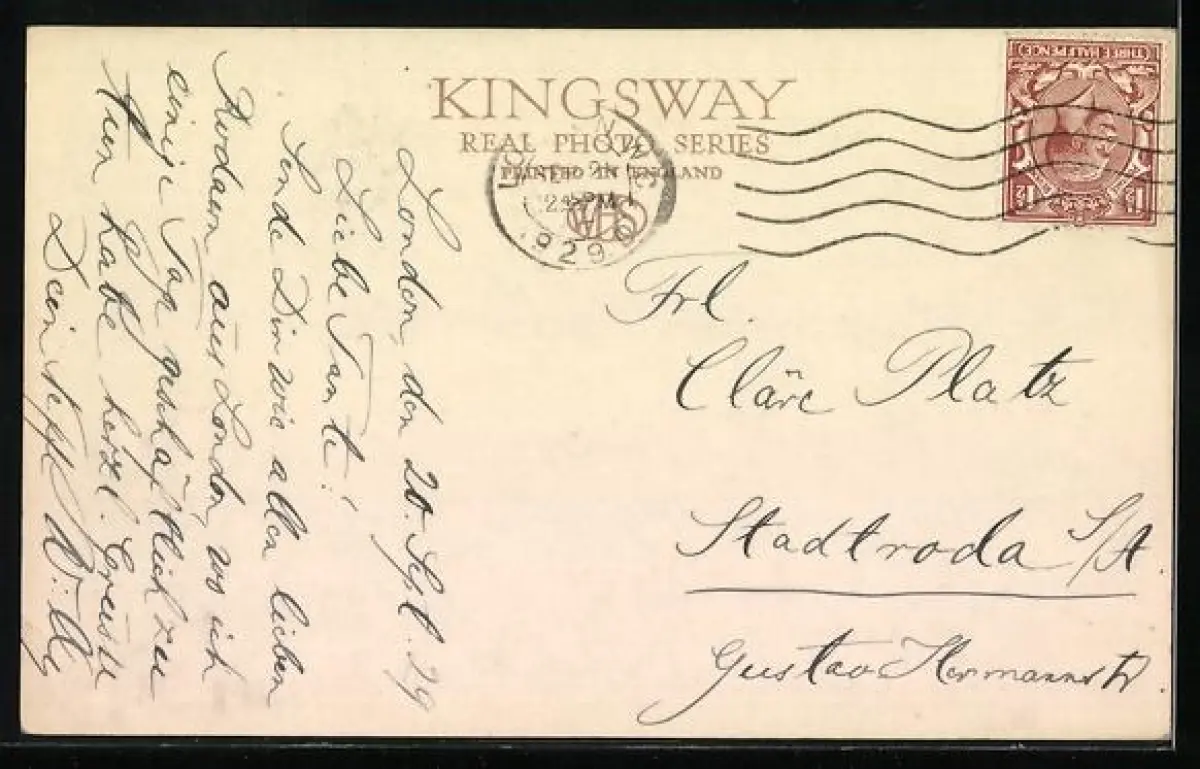 KINGSWAY
REAL PHOTO SERIES
PRINTED IN ENGLAND
WHS
1929
THREE HALFPENCE
London, den 20. Sept. 29
Liebe Tante!
Sende Dir wie allen lieben
Rodaern aus London, wo ich
einige Tage geschäftlich zu
tun habe herzl. Grüsse
Dein Neffe Willy
Frl.
Cläre Platz
Stadtroda S/A.
Gustav Hermannstr.